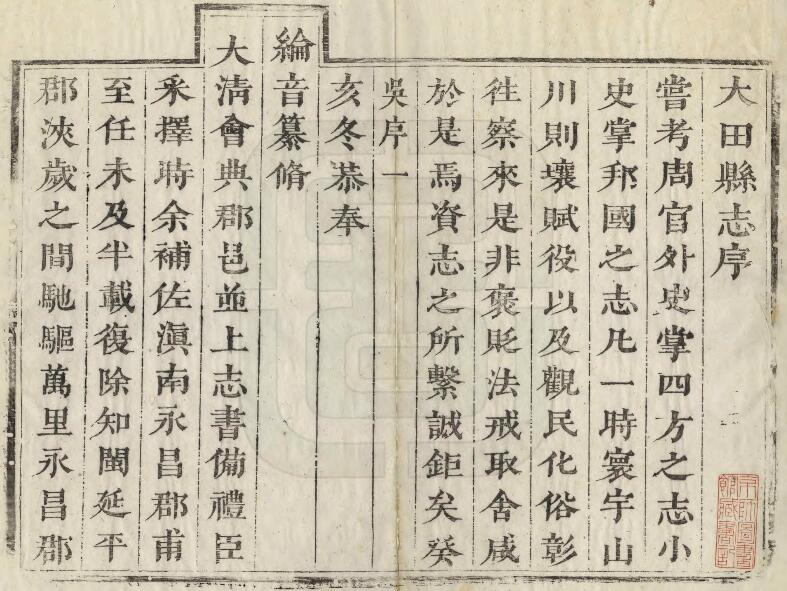 大田縣志序
嘗考周官外史掌四方之志小
史掌邦國之志凡一時寰宇山
川則壤賦役以及觀民化俗彰
徃察來是非褒貶法戒取舍咸
於是焉資志之所繫誠鉅矣癸
吳序 一
亥冬恭奉
綸音纂脩
大清會典郡邑並上志書備禮臣
采擇時余補佐滇南永昌郡甫
至任未及半載復除知閩延平
郡浹歲之間馳驅萬里永昌郡
京師圖書
館藏書記